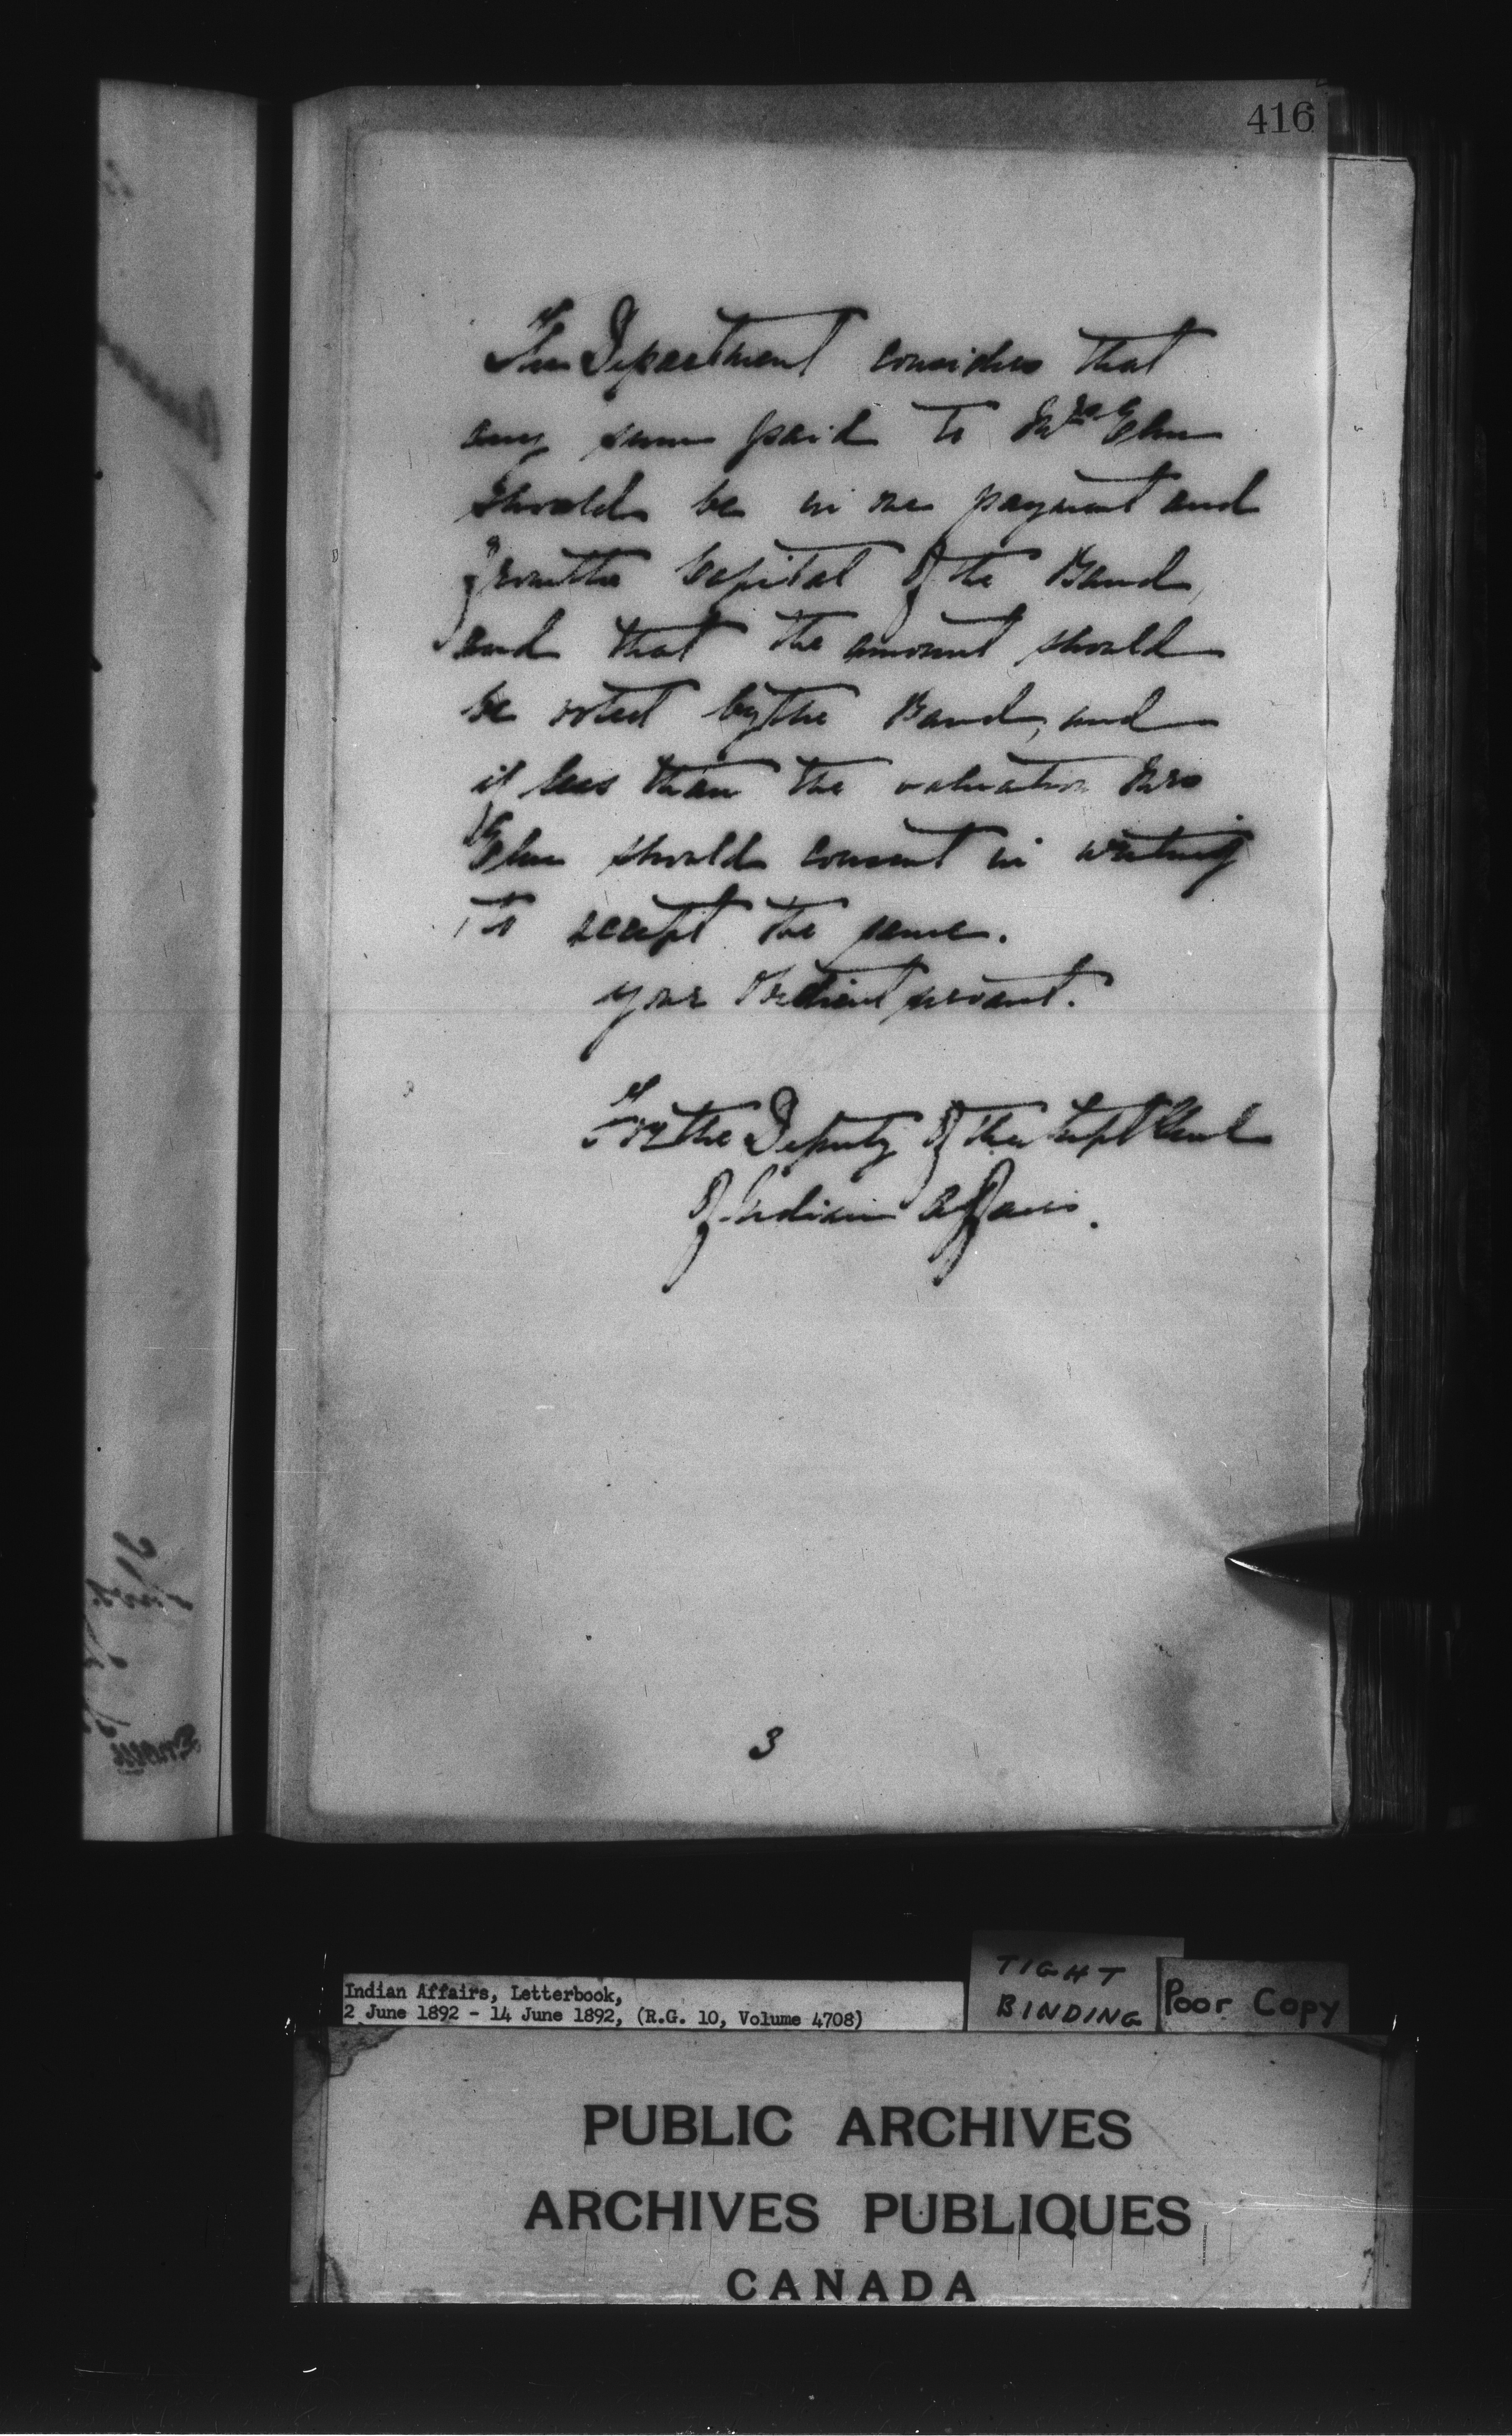 416
The Department considers that
any sum paid to Mrs Elm
should be in one payment and
from the Capital of the Band,
and that the amount should
be voted by the Band, and
if less than the valuation Mrs
Elm should consent in writing
to accept the same.
your obedient servant.
For the Deputy of the Supt Genl
of Indian Affairs.
3
Indian Affairs, Letterbook,
2 June 1892 - 14 June 1892, (R.G. 10, Volume 4708)
TIGHT
BINDING
Poor Copy
PUBLIC ARCHIVES
ARCHIVES PUBLIQUES
CANADA